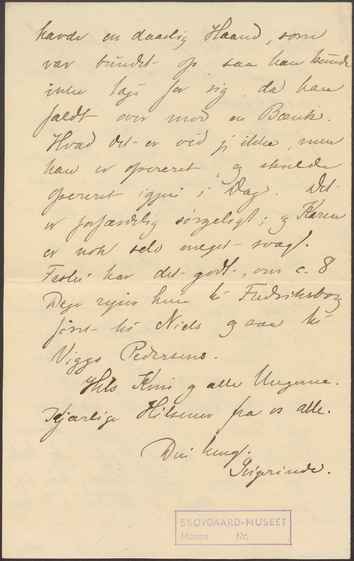 havde en daarlig Haand, som
var bundet op saa han kunde
inte tage for sig, da han
faldt over mod en Bænk.
Hvad det er ved jeg ikke, men
han er opereret, og skulde
opereret igjen i Dag. Det
er forfærdelig sørgeligt; og Karen
er nok selv meget svag.
har det godt, om c. 8
Dage rejser hun til Fredriksborg
først til Niels og saa til
Viggo Pedersens.
Hils Kris og alle Ungerne.
Kjærlige Hilsener fra os alle.
Din heng.
SKOVGAARD-MUSEET
Mappe Nr.